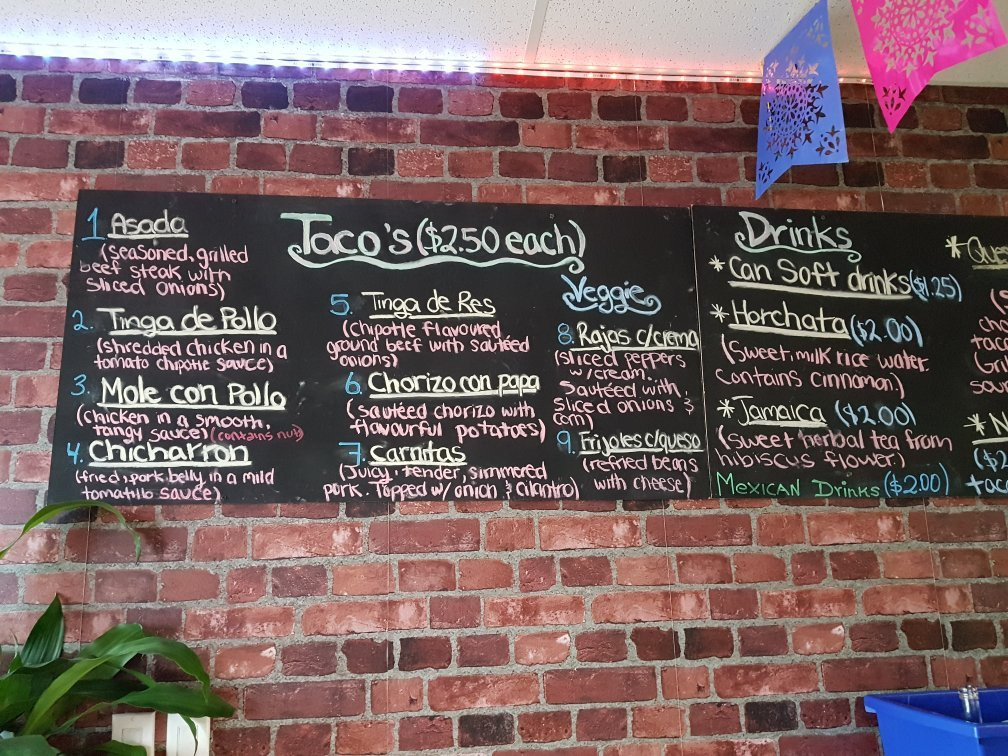 Taco's ($2.50 each)
1 Asada
(seasoned, grilled
beef steak with
sliced onions)
2. Tinga de Pollo
(shredded chicken in a
tomato chipotle sauce)
3. Mole con Pollo
(chicken in a smooth,
tangy sauce) (contains nut)
4. Chicharron
(fried, pork belly in a mild
tomatillo sauce)
5. Tinga de Res
(chipotle flavoured
ground beef with sautéed
onions)
6. Chorizo con papa
(sautéed chorizo with
flavourful potatoes)
7. Carnitas
(Juicy, tender, simmered
pork. Topped w/ onion & cilantro)
Veggie
8. Rajas c/crema
(sliced peppers
w/cream.
Sautéed with,
sliced onions &
corn)
9. Frijoles c/queso
(refried beans
with cheese)
Drinks
* Can Soft drinks ($1.25)
* Horchata ($2.00)
(Sweet, milk rice water.
contains cinnamon)
* Jamaica ($2.00)
(Sweet herbal tea from
hibiscus flower.)
Mexican Drinks ($2.00)
* Que